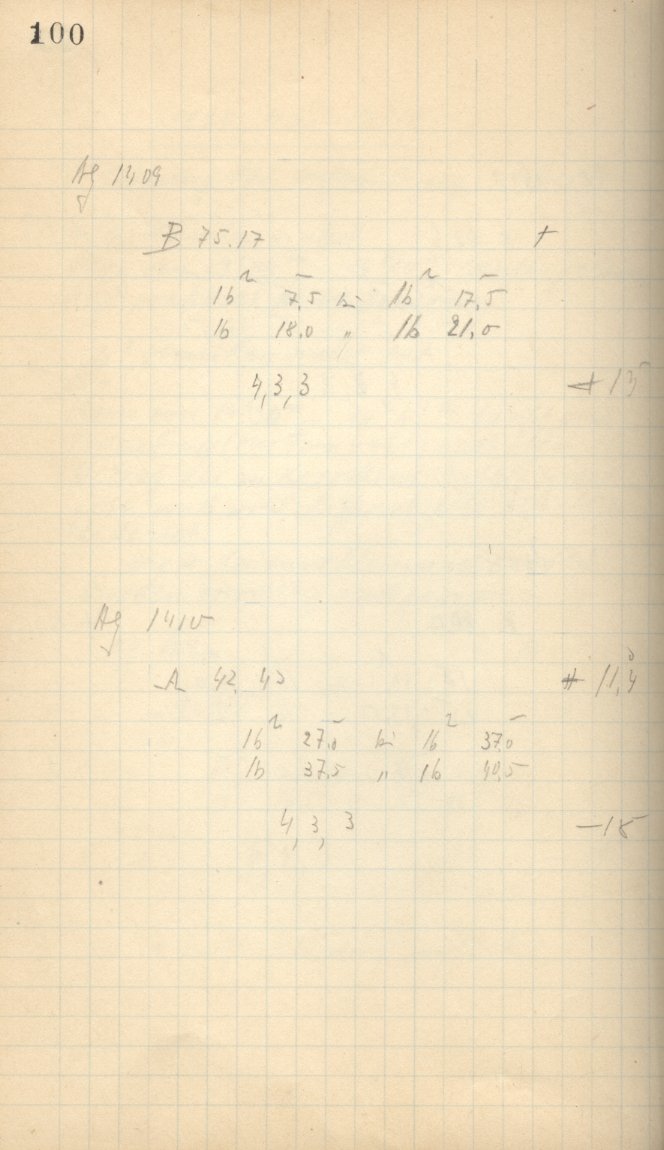 100
Ag 1409
B 75.17 +
16ʰ 7,5ᵐ bis 16ʰ 17,5ᵐ
16 18,0 " 16 21,0
4,3,3 + 13
Ag 1410
A 42. 42 + 11,4
16ʰ 27,0ᵐ bis 16ʰ 37,0ᵐ
16 37,5 " 16 40,5
4,3,3 —18